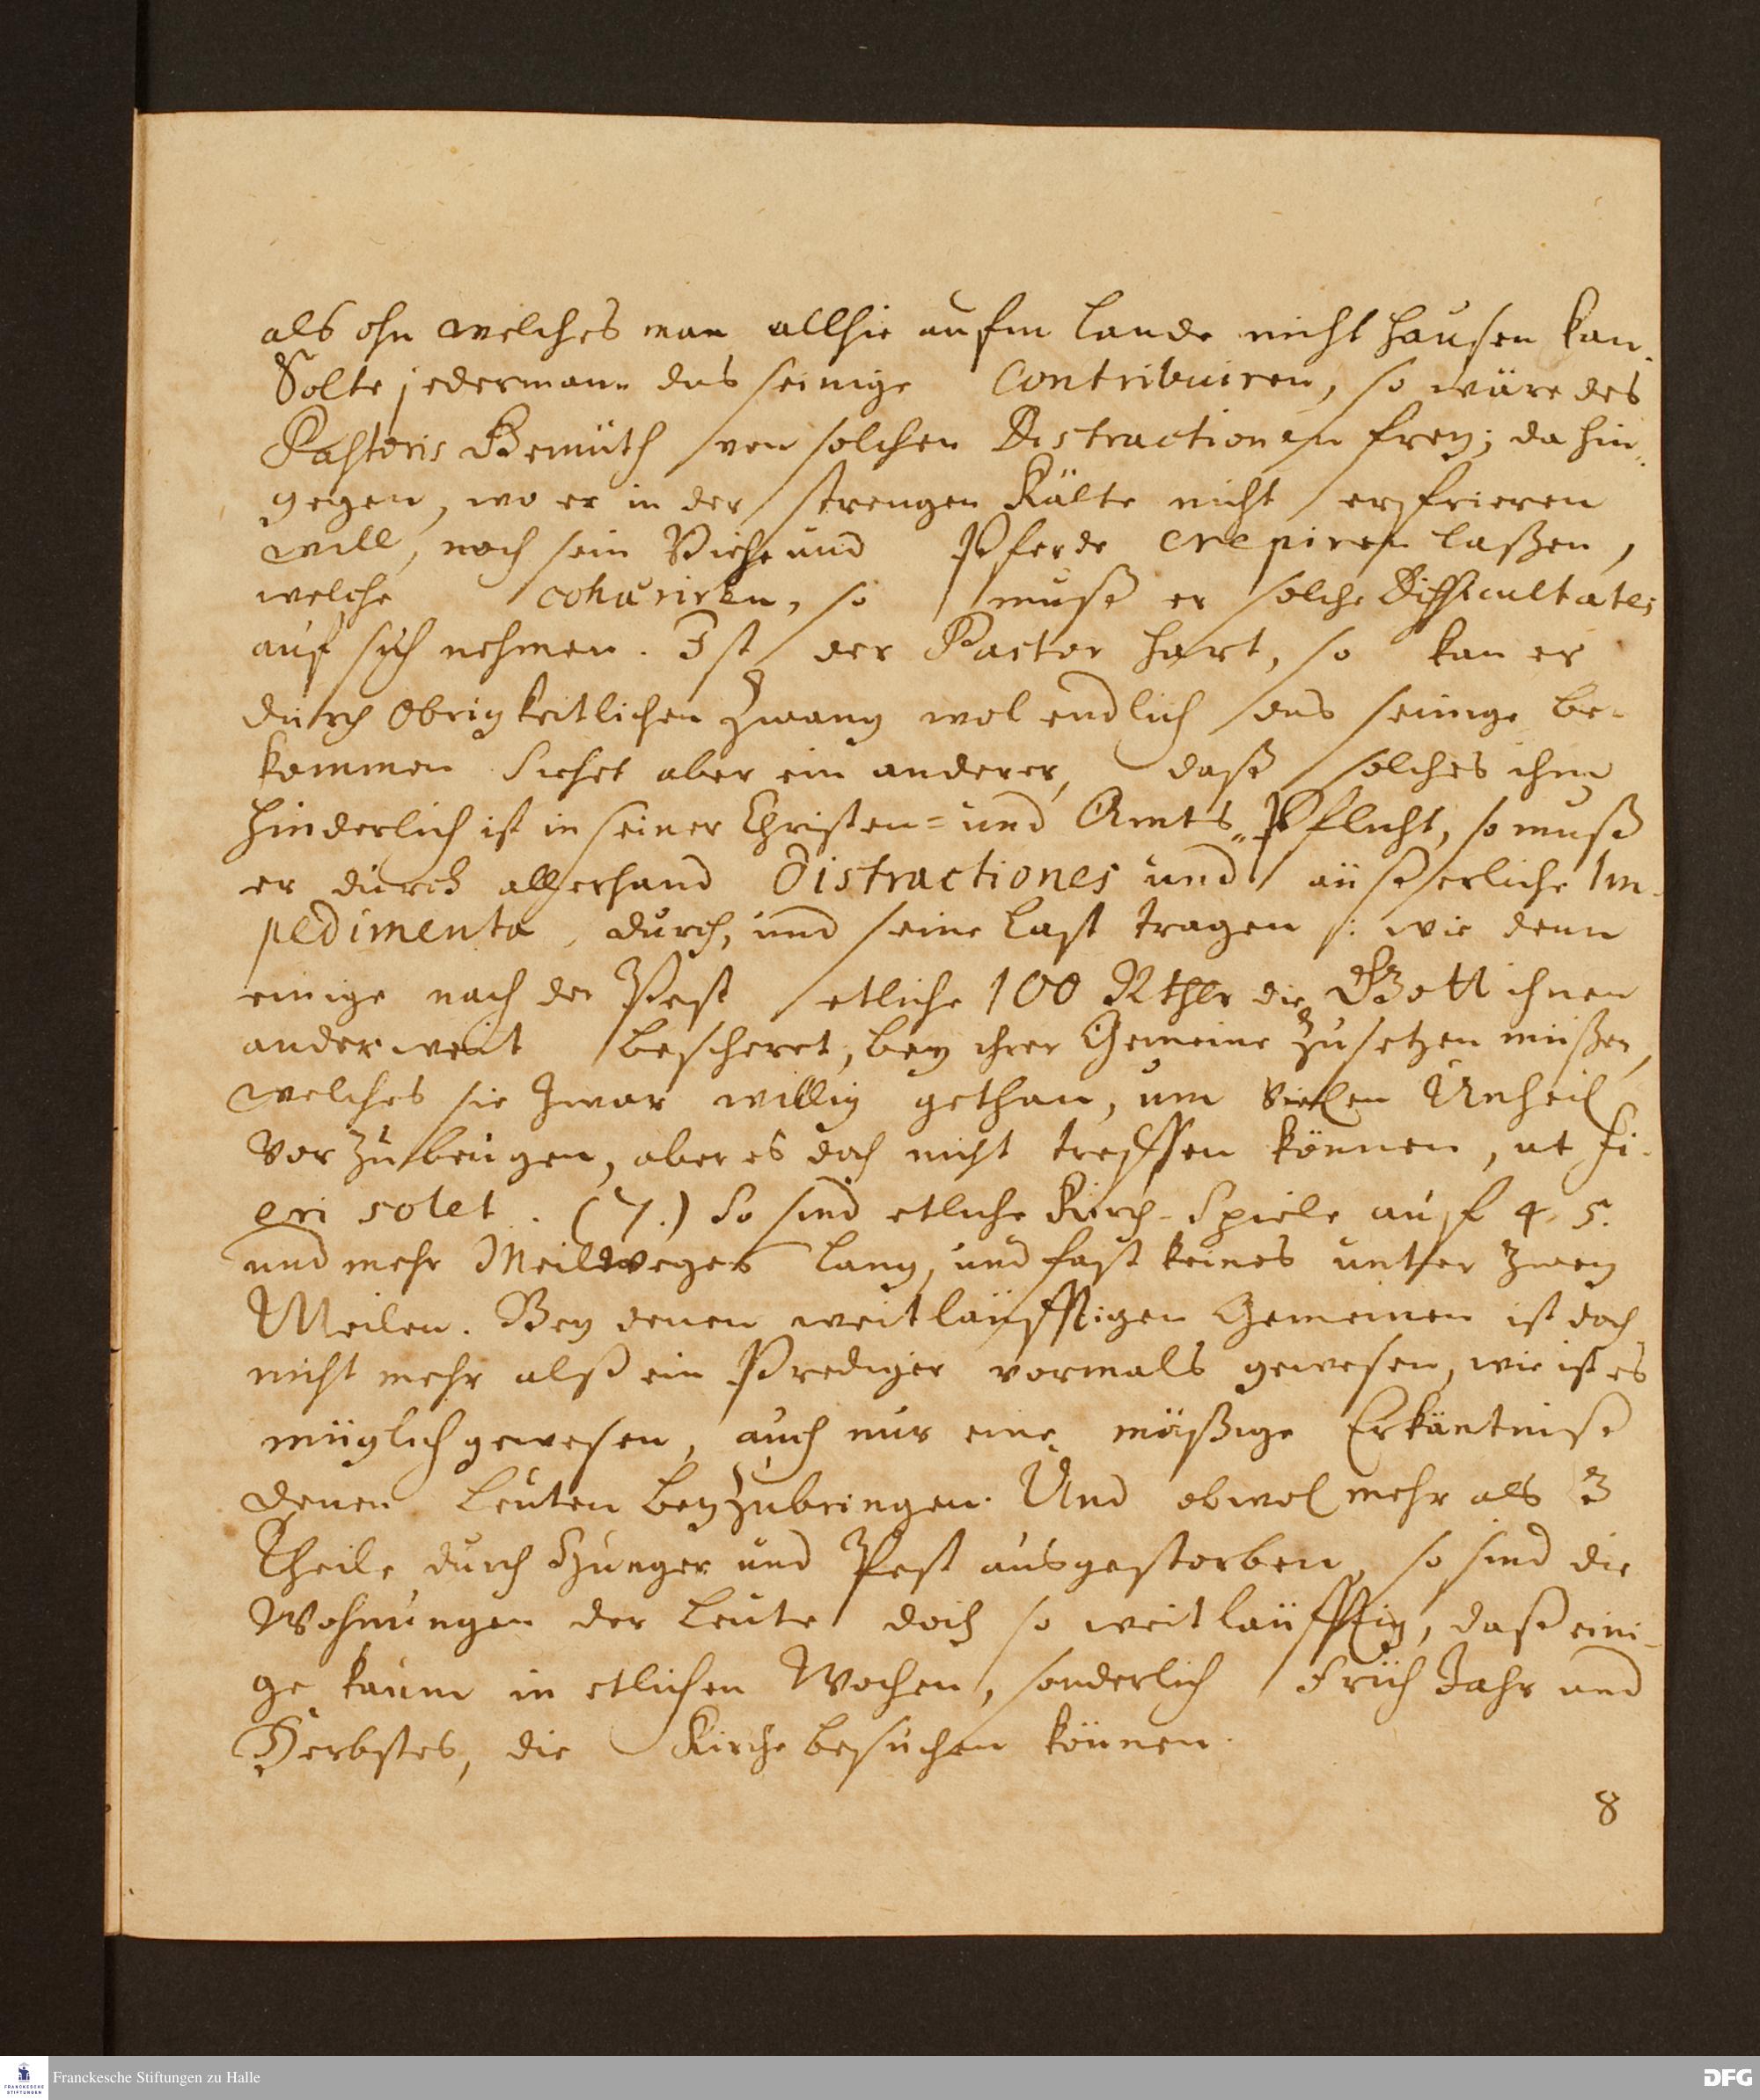 als ohn welches man allhie aufm Lande nicht hausen kan.
Solte jedermann das seinige contribuiren, so wäre des
Pastoris Gemüth von solchen Distractionen frey; da hin„
gegen, wo er in der strengen Kälte nicht erfrieren
will, noch sein Viehe und Pferde crepiren laßen,
welche so muß er solche Difficultates
auf sich nehmen. Ist der Pastor hart, so kan er
durch Obrigkeitlichen Zwang wol endlich das seinige be-
kommen Siehet aber ein anderer, daß solches ihm
hinderlich ist in seiner Christen= und Amts„Pflicht, so muß
er durch allerhand Distractiones und äußerliche Im-
pedimenta, durch, und seine Last tragen : wie denn
einige nach der Pest etliche 100 Rthlr die Gott ihnen
anderweit bescheret, bey ihrer Gemeine Zusetzen müßen,
welches sie zwar willig gethan, um vielen Unheil
vorzubeugen, aber es doch nicht treffen können, ut fi-
eri solet. (7.) So sind etliche Kirch-Spiele auf 4. 5.
und mehr Meilweges lang, und fast keines unter zwey
Meilen. Bey denen weitläufftigen Gemeinen ist doch
nicht mehr alß ein Prediger vormals gewesen, wie ist es
müglich gewesen, auch nur eine mäßige Erkäntniß
denen Leuten beyzubringen. Und obwol mehr als 3
Theile durch Hunger und Pest ausgestorben, so sind die
Wohnungen der Leute doch so weitläufftig, daß eini-
ge kaum in etlichen Wochen, sonderlich Früh Jahr und
Herbstes, die Kirche besuchen können.
8
Franckesche Stiftungen zu Halle
DFG